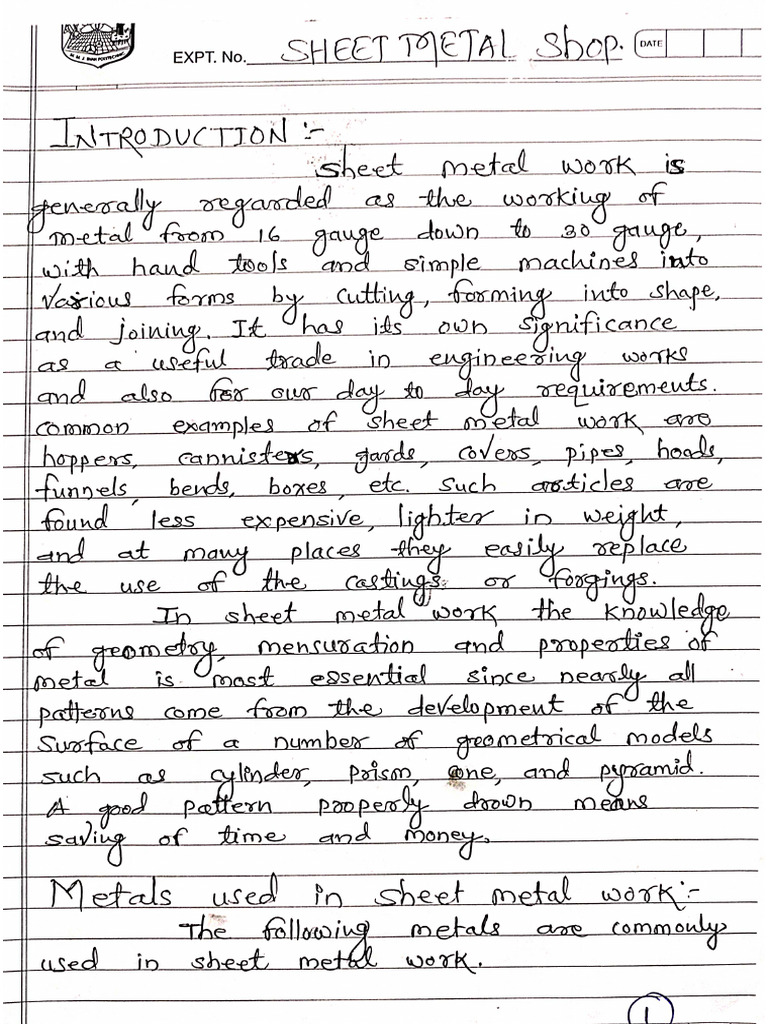 EXPT. No. SHEET METAL Shop. DATE
INTRODUCTION :-
sheet metal work is
generally regarded as the working of
metal from 16 gauge down to 30 gauge,
with hand tools and simple machines into
various forms by cutting, forming into shape,
and joining. It has its own significance
as a useful trade in engineering works
and also for our day to day requirements.
common examples of sheet metal work are
hoppers, cannisters, gards, covers, pipes, hoods,
funnels, bends, boxes, etc. such articles are
found less expensive, lighter in weight,
and at many places they easily replace
the use of the castings or forgings.
In sheet metal work the knowledge
of geometry, mensuration and properties of
metal is most essential since nearly all
patterns come from the development of the
surface of a number of geometrical models
such as cylinder, prison, cone, and pyramid.
A good pattern properly drown means
saving of time and money.
Metals used in sheet metal work:-
The following metals are commonly
used in sheet metal work.
1